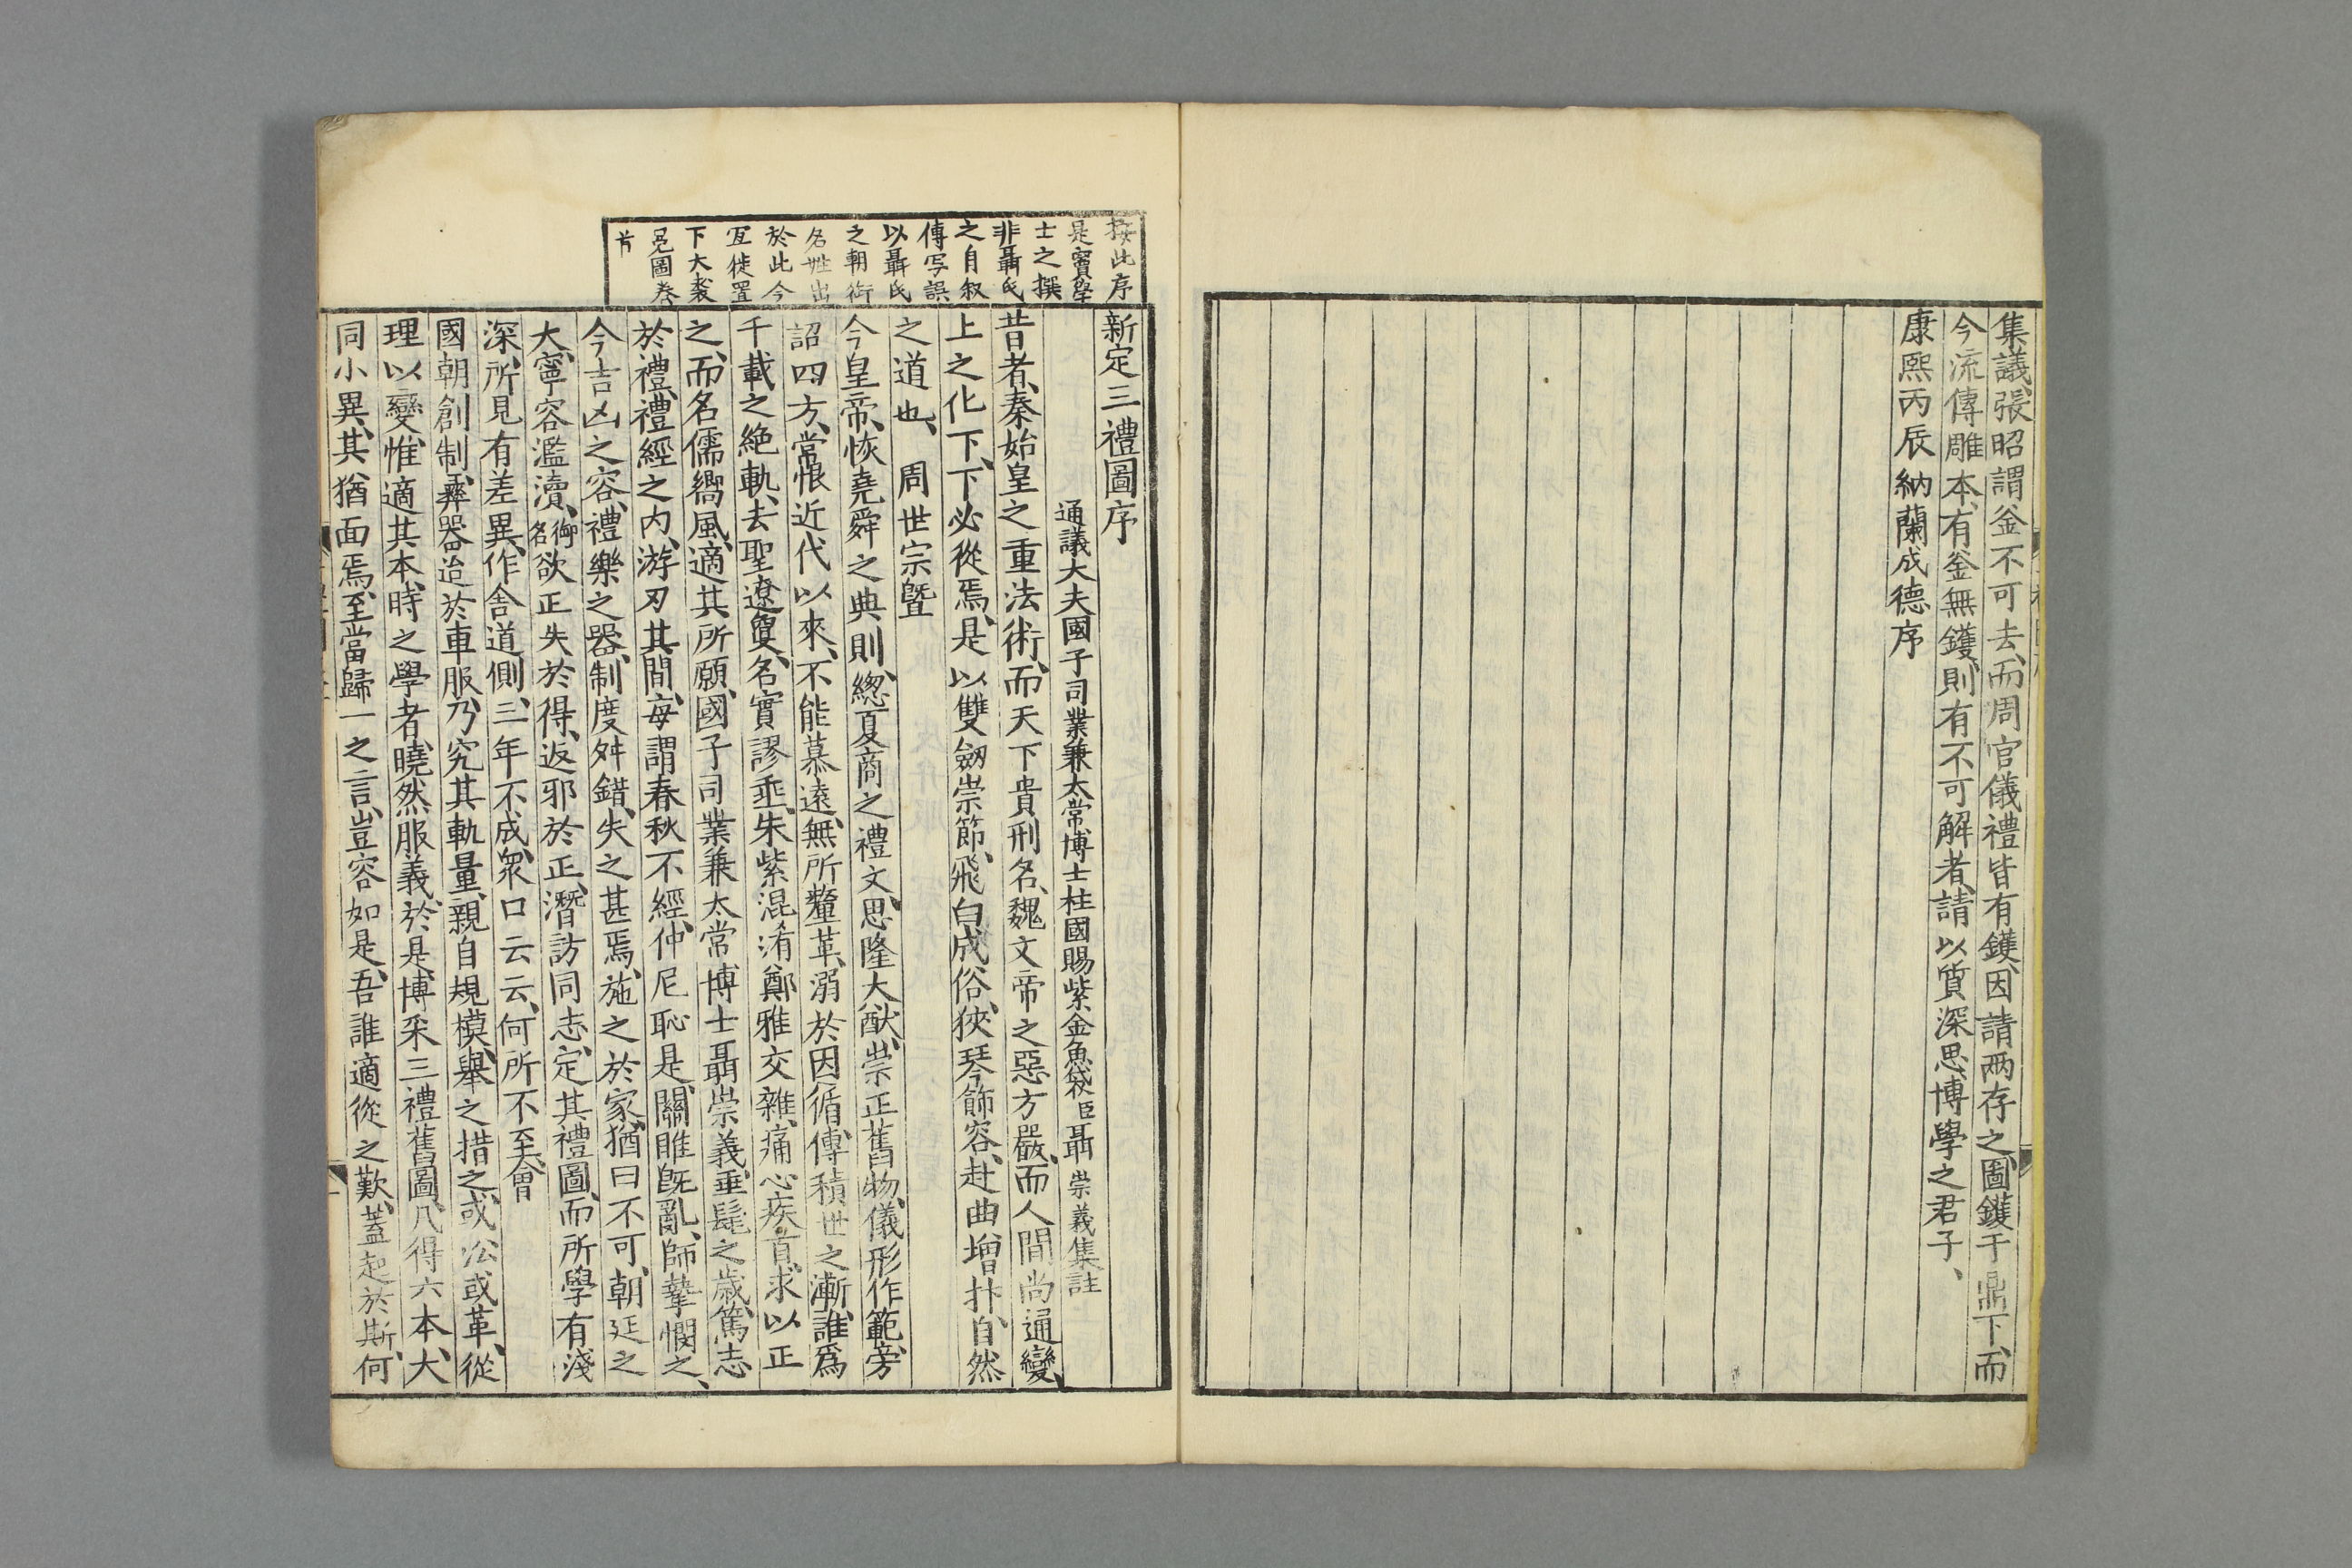 集議、張昭謂釜不可去、而周官儀禮皆有鑊、因請兩存之、圖鑊于鼎下、而
今流傳雕本、有釜無鑊、則有不可解者、請以質深思、博學之君子、
康熙丙辰納蘭成德序
按此序
是竇學
士之撰
非聶氏
之自叙
傳写誤
以聶氏
之朝銜
名姓出
於此今
冝徙置
下大裘
冕圖卷
首
新定三禮圖序
通議大夫國子司業兼太常博士柱國賜紫金魚袋臣聶崇義集註
昔者、秦始皇之重法術、而天下貴刑名、魏文帝之惡方嚴、而人間尚通變、
上之化下、下必從焉、是以雙劒崇節、飛白成俗、狹琴飾容、赴曲增抃、自然
之道也、周世宗暨
今皇帝、恢堯舜之典則、緫夏商之禮文、思隆大猷、崇正舊物、儀形作範、旁
詔四方、常恨近代以來、不能慕遠、無所釐革、溺於因循、傳積世之漸、誰爲
千載之絶軌、去聖遼夐、名實謬乖、朱紫混淆、鄭雅交雜、痛心疾首、求以正
之、而名儒嚮風、適其所願、國子司業兼太常博士聶崇義、垂髦之歲、篤志
於禮、禮經之内、游刃其間、每謂春秋不經、仲尼恥是、關雎旣亂、師摯憫之、
今吉凶之容、禮樂之器、制度舛錯、失之甚焉、施之於家、猶曰不可、朝廷之
大、寧容濫瀆、御名欲正失於得、返邪於正、潛訪同志、定其禮圖、而所學有淺
深、所見有差異、作舎道側、三年不成、衆口云云、何所不至、會
國朝創制、彝器迨於車服、乃究其軌量、親自規模、舉之措之、或㳂或革、從
理以變、惟適其本、時之學者、曉然服義、於是博采三禮舊圖、凡得六本、大
同小異、其猶面焉、至當歸一之言、豈容如是、吾誰適從之歎、蓋起於斯、何